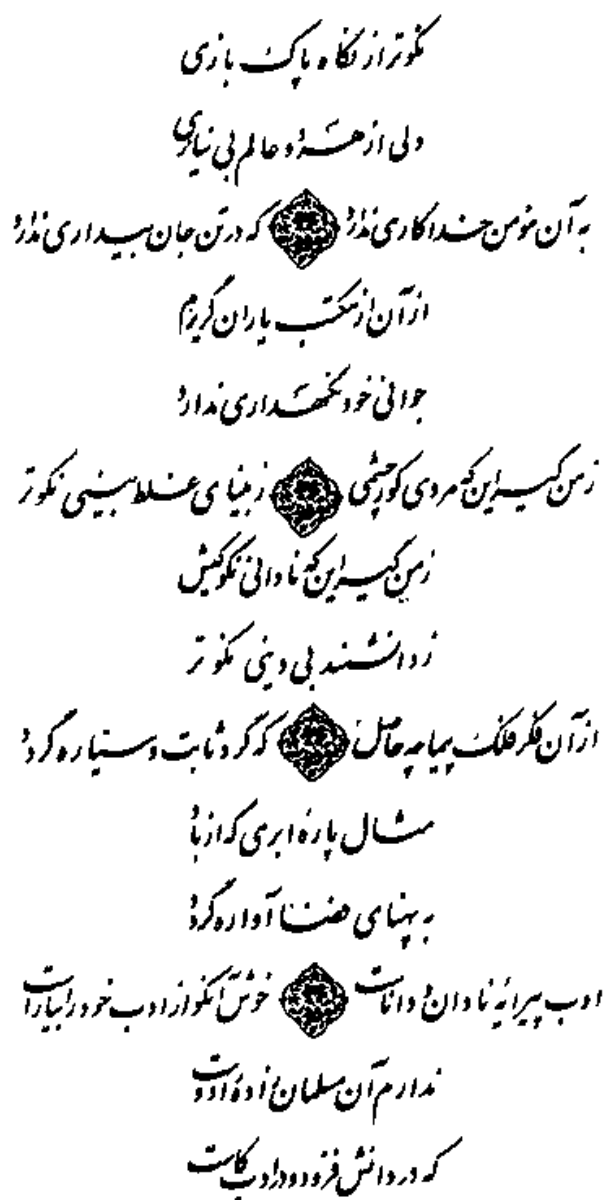 نکوتر از نگاه پاک بازی
دلی از هر دو عالم بی نیازی
به آن مؤمن خدا کاری ندارد که در تن جان بیداری ندارد
از آن از مکتب یاران گریزم
جوانی خود نگهداری ندارد
ز من گیر این که مردی کور چشمی ز بینای غلط بینی نکوتر
ز من گیر این که نادانی نکو کیش
ز دانشمند بی دینی نکوتر
از آن فکر فلک پیما چه حاصل که گرد ثابت و سیاره گردد
مثال پارهٔ ابری که از باد
به پهنای فضا آواره گردد
ادب پیرایهٔ نادان و داناست خوش آنکو از ادب خود را بیاراست
ندارم آن مسلمان زاده را دوست
که در دانش فزود و در ادب کاست